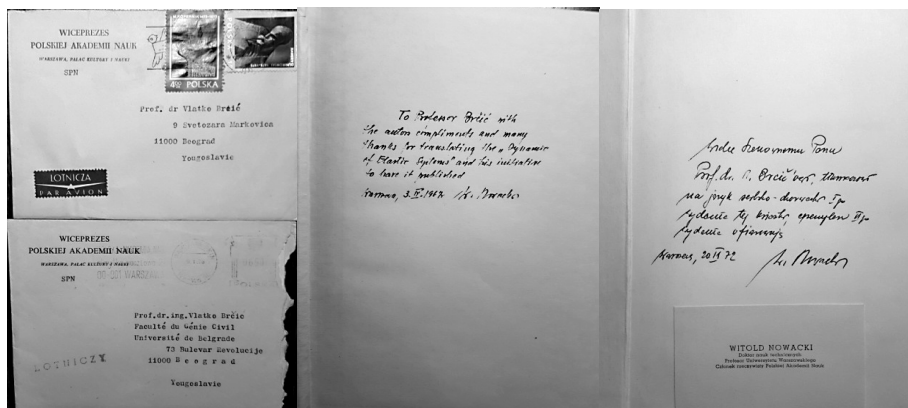 WICEPREZES
POLSKIEJ AKADEMII NAUK
WARSZAWA, PAŁAC KULTURY I NAUKI
SPN
POLSKA
Prof. dr Vlatko Brčić
9 Svetozara Markovica
11000 Beograd
Yougoslavie
LOTNICZA
PAR AVION
WICEPREZES
POLSKIEJ AKADEMII NAUK
WARSZAWA, PAŁAC KULTURY I NAUKI
SPN
Prof.dr.ing.Vlatko Brčic
Faculté du Génie Civil
Université de Belgrade
73 Bulevar Revolucije
11000 Beograd
Yougoslavie
LOTNICZY
To Professor Brčić with
the autors compliments and many
thanks for translating the "Dynamic
of Elastic Systems" and his initiative
to have it published
W. Nowacki
Szanownemu Panu
Prof. dr.
na język serbo-chorwacki I
wydania tej II
wydanie ofiarowuję
Warszawa, 20 IX 72
W. Nowacki
WITOLD NOWACKI
Doktor nauk technicznych
Profesor Uniwersytetu Warszawskiego
Członek rzeczywisty Polskiej Akademii Nauk